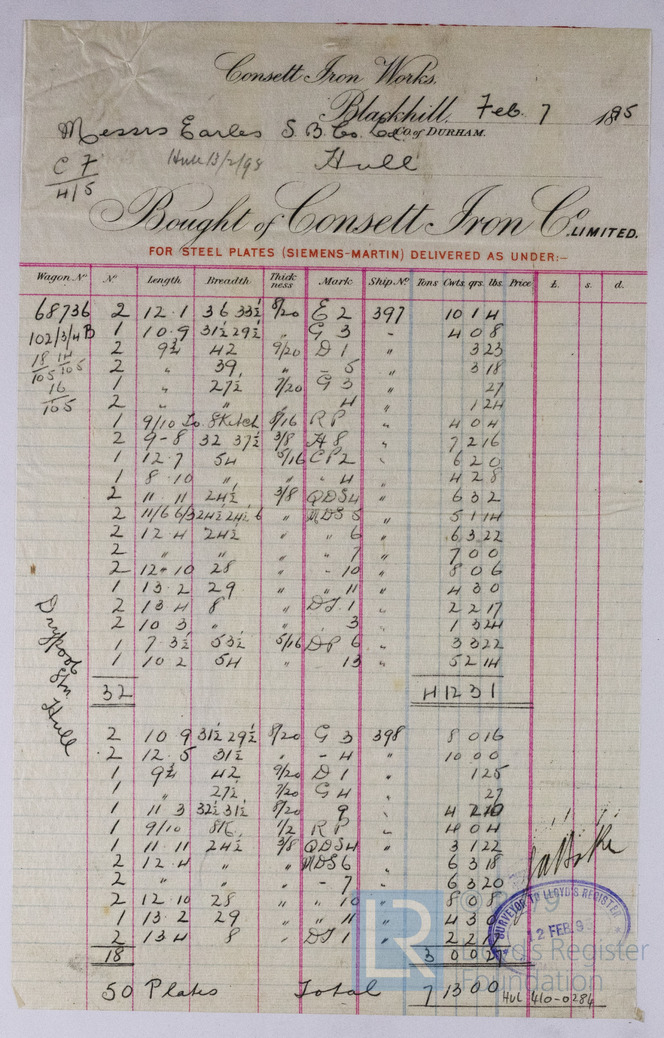 Consett Iron Works.
Blackhill, Feb. 7 1895
Messrs Earles S. B. Co. Ld. Co. of DURHAM.
C 7 Hull 13/2/95 Hull
415
Bought of Consett Iron Co. LIMITED.
FOR STEEL PLATES (SIEMENS-MARTIN) DELIVERED AS UNDER:–
Wagon No No Length Breadth Thickness Mark Ship No Tons Cwts. qrs. lbs. Price £. s. d.
68736 2 12 . 1 36 33½ 8/20 E 2 397 10 1 4
102/3/4 B 1 10 . 9 31½ 29½ " G 3 " 4 0 8
18/105 14/105 2 9¾ 42 9/20 D 1 " 3 23
2 " 39 " - 5 " 3 18
16/105 1 " 27½ 7/20 G 3 " 27
2 " " " " 4 " 1 24
1 9/10 To Sketch 8/16 R P " 4 0 4
2 9-8 32 37½ 3/8 A 8 " 7 2 16
1 12 7 54 5/16 C P 2 " 6 2 0
1 8 . 10 " " " 4 " 4 2 8
2 11 . 11 24½ 3/8 QDS4 " 6 3 2
2 11/6 6/3 24½ 24½ 6 " MDS 5 " 5 1 14
2 12 . 4 24½ " " 6 " 6 3 22
2 " " " " 7 " 7 0 0
2 12 - 10 28 " - 10 " 8 0 6
1 13 . 2 29 " " 11 " 4 3 0
2 13 4 8 " DT. 1 " 2 2 17
2 10 3 " " " 3 " 1 3 24
1 7 . 3½ 53½ 5/16 DP 6 " 3 3 22
1 10 2 54 " 13 " 5 2 14
32 4 12 3 1
Drypool Stn. Hull
2 10 9 31½ 29½ 8/20 G 3 398 8 0 16
2 12 . 5 31½ " - 4 " 10 0 0
1 9¾ 42 9/20 D 1 " 1 25
1 " 27½ 7/20 G 4 " 27
1 11 3 32½ 31½ 8/20 9 "
1 9/10 SK. 1/2 R P " 4 0 4
1 11 . 11 24½ 3/8 QDS4 " 3 1 22
2 12 . 4 " " MDS 6 " 6 3 18
2 " " " - 7 " 6 3 20
2 12 . 10 28 " " 10 " 8 0 8
1 13 . 2 29 " " 11 " 4 3 0
2 13 4 8 " DT 1 " 2 2
18 3 0 0
SURVEYOR TO LLOYD'S REGISTER
12 FEB. 9
50 Plates Total 7 13 0 0
HUL 410-0284
LR
© 2019
Lloyd's Register
Foundation